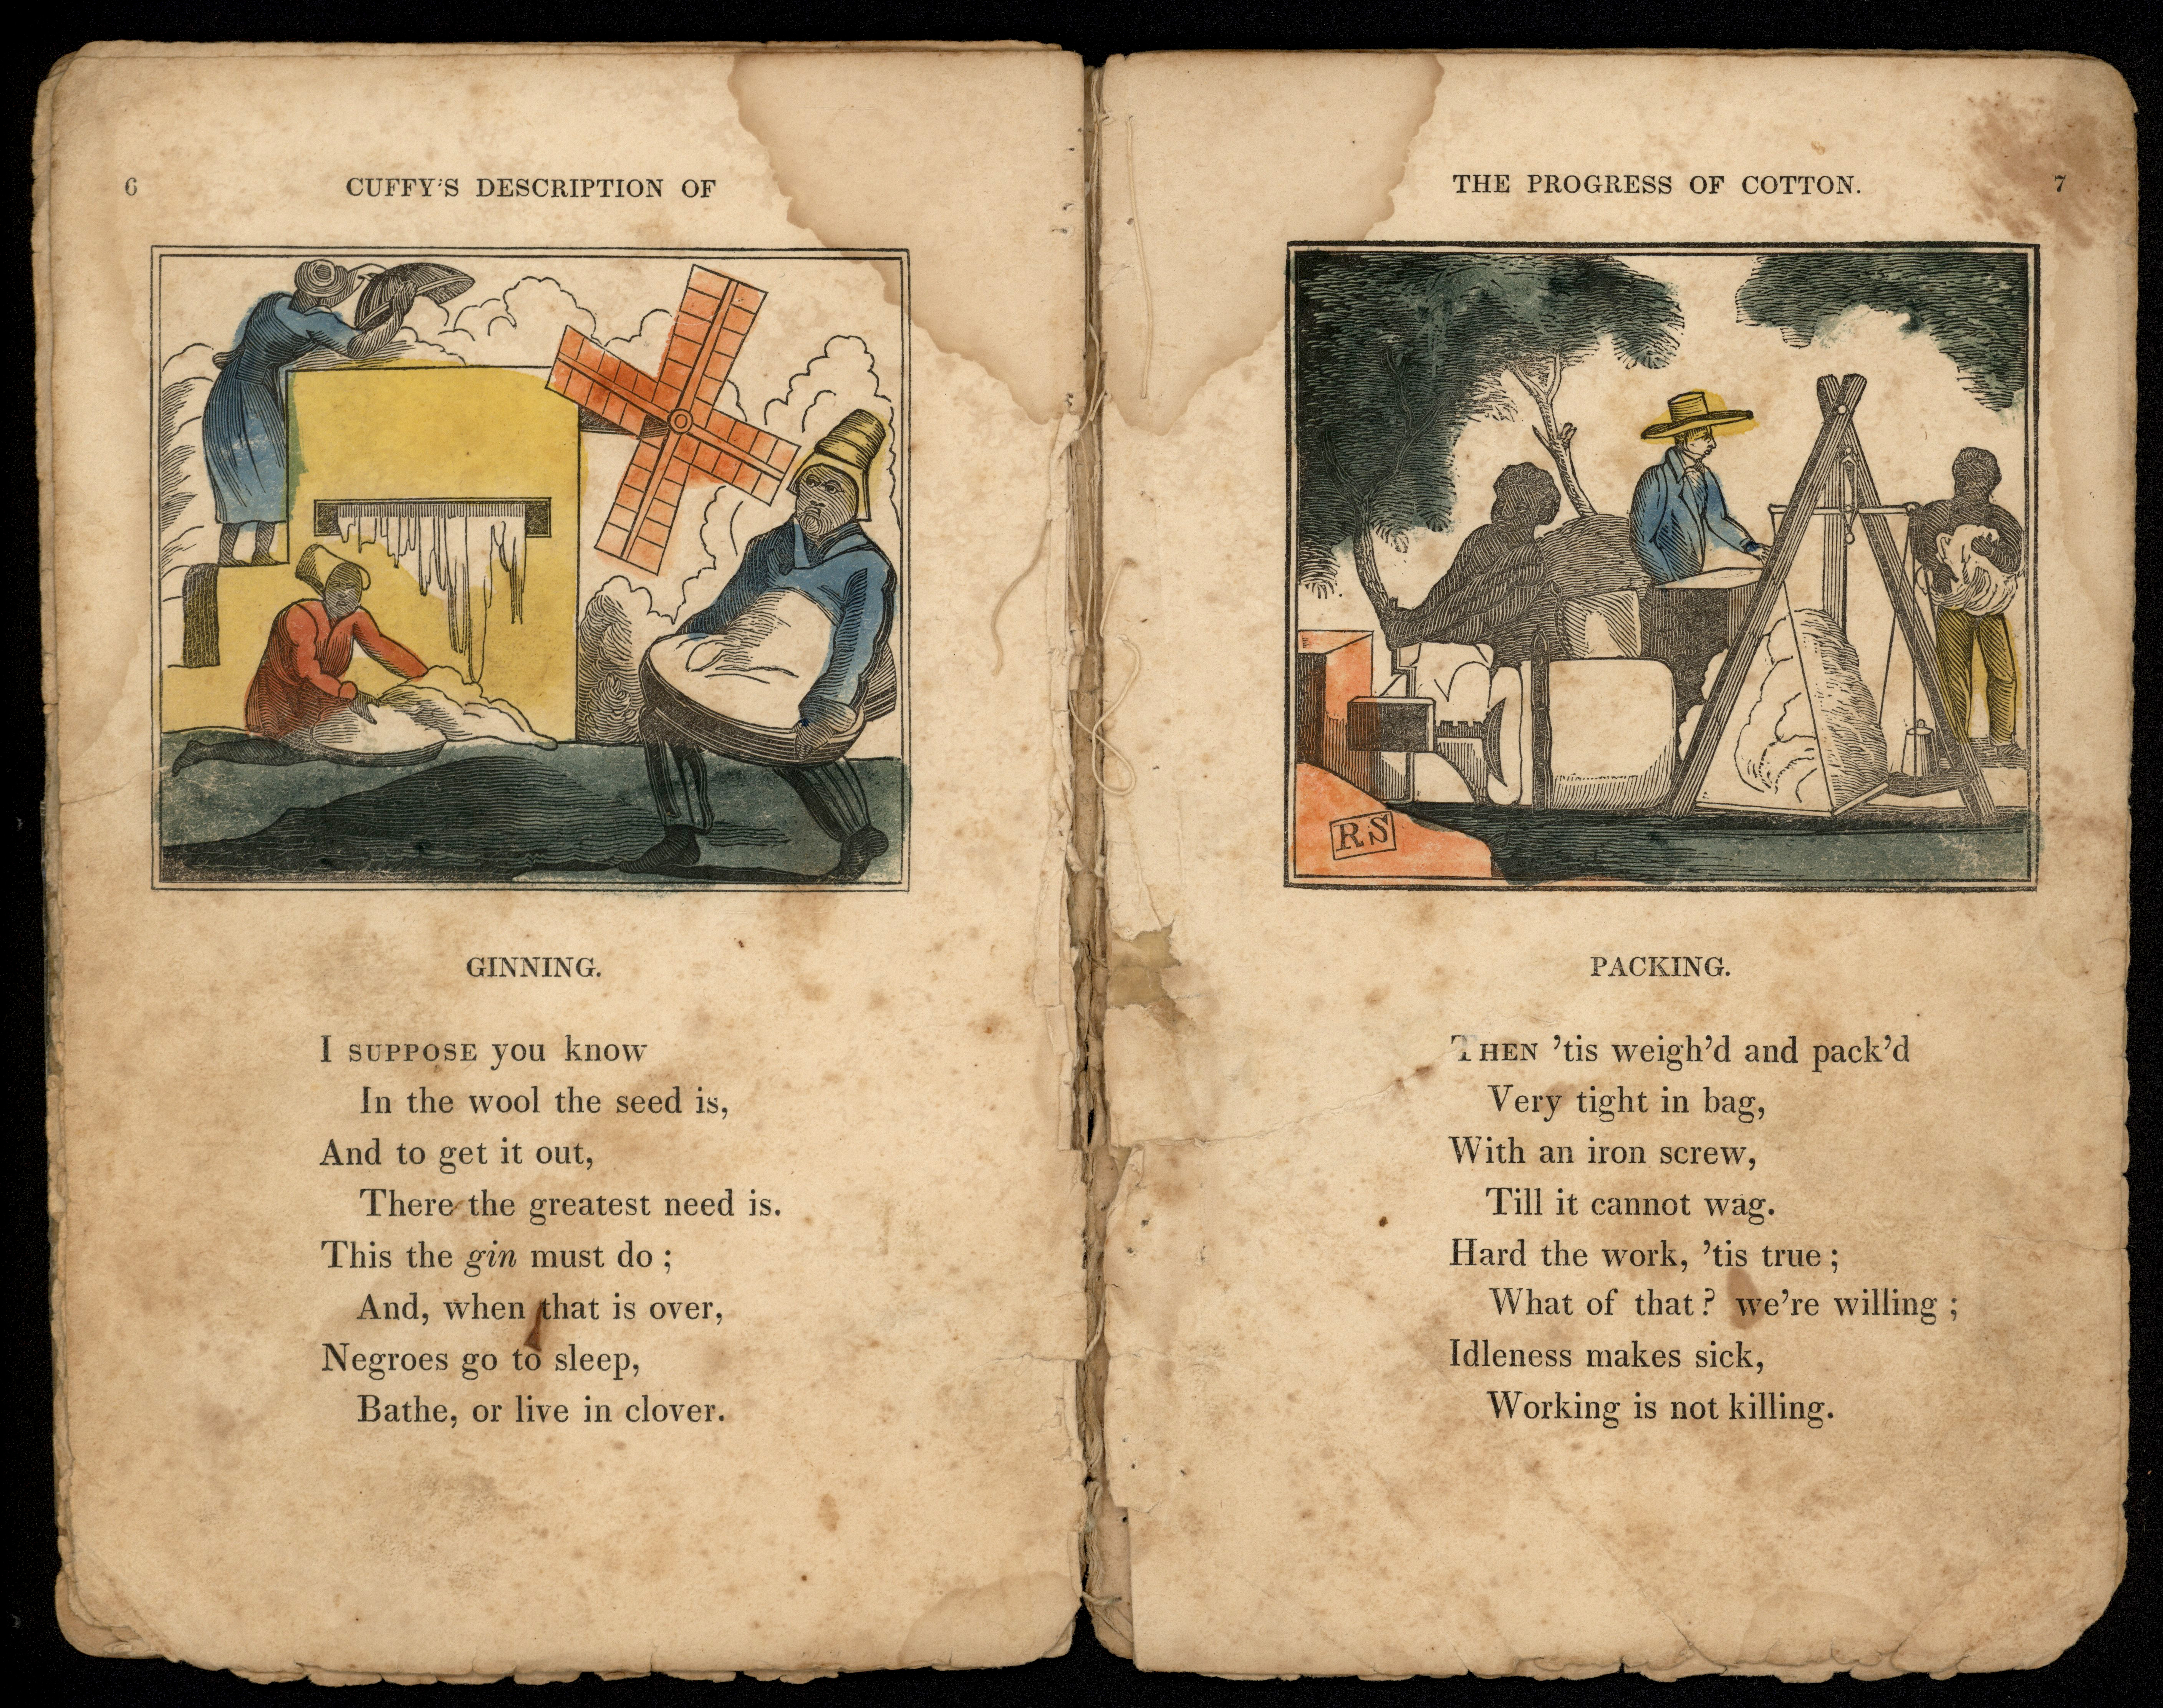 6
CUFFY'S DESCRIPTION OF
GINNING.
I SUPPOSE you know
In the wool the seed is,
And to get it out,
There the greatest need is.
This the gin must do ;
And, when that is over,
Negroes go to sleep,
Bathe, or live in clover.
THE PROGRESS OF COTTON.
7
RS
PACKING.
THEN 'tis weigh'd and pack'd
Very tight in bag,
With an iron screw,
Till it cannot wag.
Hard the work, 'tis true ;
What of that ? we're willing ;
Idleness makes sick,
Working is not killing.